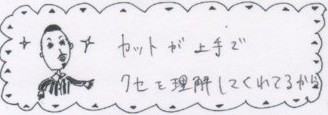 カットが上手で
クセを理解してくれてるから